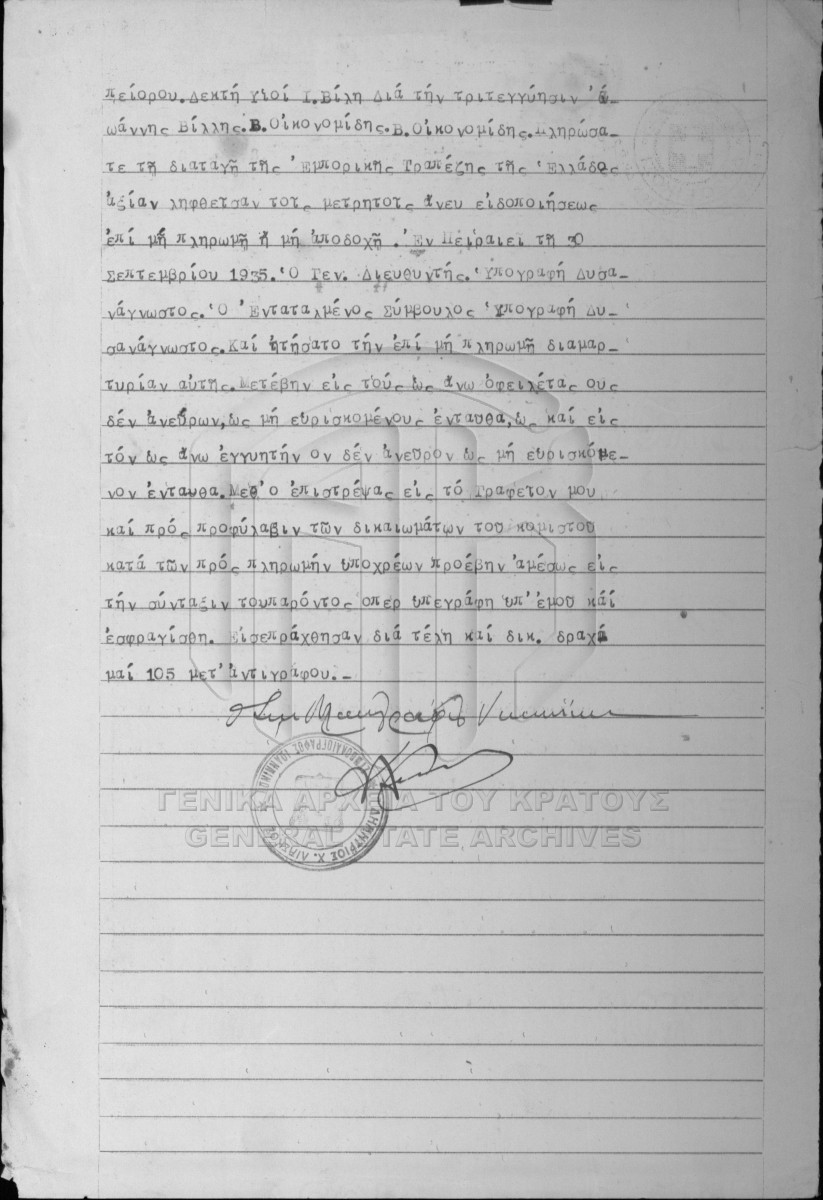 πείορου. Δεκτή Υιοί Ι. Βίλη Διά τήν τριτεγγύησιν Ἰ-
ωάννης Βίλλης. Β. Οἰκονομίδης. Β. Οἰκονομίδης. Πληρώσα-
τε τῇ διαταγῇ τῆς Ἐμπορικῆς Τραπέζης τῆς Ἑλλάδος
ἀξίαν ληφθεῖσαν τοῖς μετρητοῖς ἄνευ εἰδοποιήσεως
ἐπί μή πληρωμῇ ἤ μή ἀποδοχῇ. Ἐν Πειραιεῖ τῇ 30
Σεπτεμβρίου 1935. Ὁ Γεν. Διευθυντής. Ὑπογραφή Δυσα-
νάγνωστος. Ὁ Ἐνταταλμένος Σύμβουλος Ὑπογραφή Δυ-
σανάγνωστος. Καί ᾐτήσατο τήν ἐπί μή πληρωμῇ διαμαρ-
τυρίαν αὐτῆς. Μετέβην εἰς τούς ὡς ἄνω ὀφειλέτας οὕς
δέν ἀνεῦρων, ὡς μή εὑρισκομένους ἐνταῦθα, ὡς καί εἰς
τόν ὡς ἄνω ἐγγυητήν ὅν δέν ἀνεῦρον ὡς μή εὑρισκόμε-
νον ἐνταῦθα. Μεθ' ὅ ἐπιστρέψας εἰς τό Γραφεῖον μου
καί πρός προφύλαξιν τῶν δικαιωμάτων τοῦ κομιστοῦ
κατά τῶν πρός πληρωμήν ὑποχρέων προέβην ἀμέσως εἰς
τήν σύνταξιν τοῦπαρόντος ὅπερ ὑπεγράφη ὑπ' ἐμοῦ καί
ἐσφραγίσθη. Εἰσεπράχθησαν διά τέλη καί δικ. δραχ
μαί 105 μετ' ἀντιγράφου.-
ΔΗΜΗΤΡΙΟΣ Χ.
ΓΕΝΙΚΑ ΑΡΧΕΙΑ ΤΟΥ ΚΡΑΤΟΥΣ
GENERAL STATE ARCHIVES